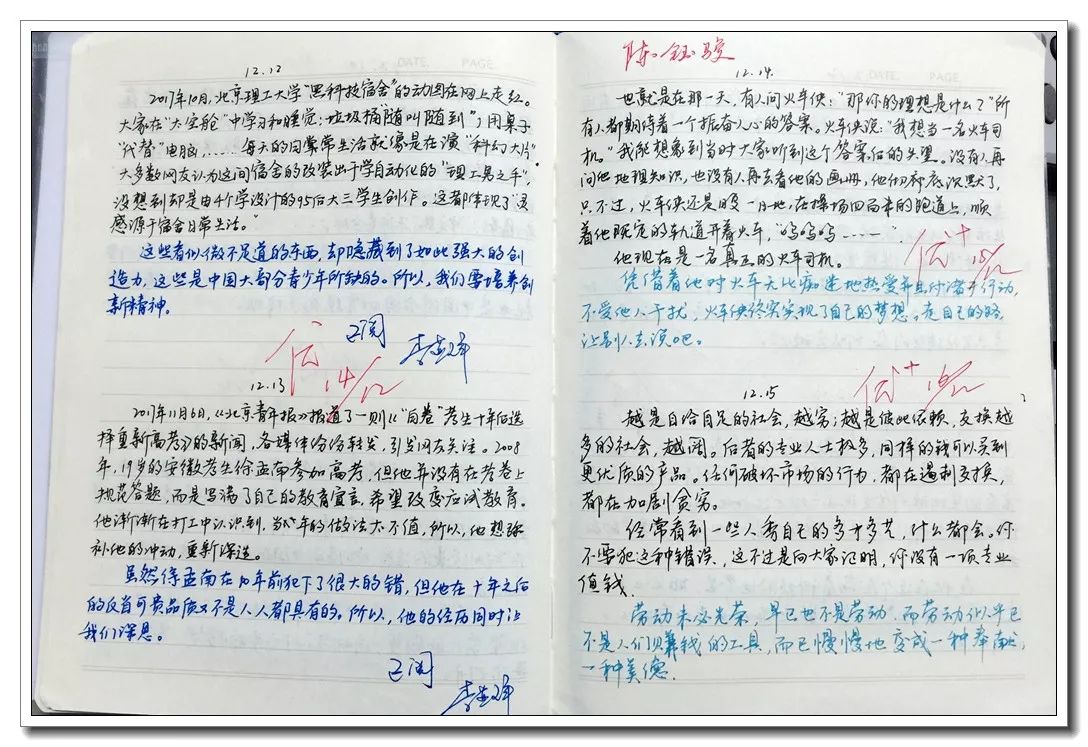 12.12
2017年10月,北京理工大学"黑科技宿舍"的动图在网上走红。
大家在"太空舱"中学习和睡觉;垃圾桶"随叫随到";用桌子
"代替"电脑,……每天的日常生活就像是在演"科幻大片"。
大多数网友认为这间宿舍的改装出于学自动化的"理工男之手",
没想到却是由4个学设计的95后大三学生创作。这都体现了"灵
感源于宿舍日常生活。"
这些看似微不足道的东西,却隐藏到了如此强大的创
造力,这些是中国大部分青少年所缺的。所以,我们需培养创
新精神。
已阅
优 14/12
12.13
2017年11月6日,《北京青年报》报道了一则《"白卷"考生十年后选
择重新高考》的新闻,各媒体纷纷转发,引发网友关注。2008
年,19岁的安徽考生徐孟南参加高考,但他并没有在考卷上
规范答题,而是写满了自己的教育宣言,希望改变应试教育。
他渐渐在打工中认识到,当年的做法太不值,所以,他想弥
补他的冲动,重新深造。
虽然徐孟南在10年前犯下了很大的错,但他在十年之后
的反省可贵品质又不是人人都具有的。所以,他的经历同时让
我们深思。
已阅
DATE. PAGE
12.14.
也就是在那一天,有人问火车侠:"那你的理想是什么?"所
有人都期待着一个振奋人心的答案。火车侠说:"我想当一名火车司
机。"我能想象到当时大家听到这个答案后的失望。没有人再
问他地理知识,也没有人再去看他的画册,他们彻底沉默了,
只不过,火车侠还是日复一日地,在操场四百米的跑道上,顺
着他既定的轨道开着火车,"呜呜呜……"
他现在是一名真正的火车司机。
优+ 15/12
凭借着他对火车无比痴迷地热爱并且付诸于行动,
不受他人干扰,火车侠终究实现了自己的梦想。走自己的路
让别人去说吧。
优+ 16/12
12.15
越是自给自足的社会,越穷;越是彼此依赖、交换越
多的社会,越阔。后者的专业人士较多,同样的钱可以买到
更优质的产品。任何破坏市场的行为,都在遏制交换,
都在加剧贫穷。
经常看到一些人秀自己的多才多艺,什么都会。你
不要犯这种错误,这不过是向大家证明,你没有一项专业
值钱。
劳动未必光荣,早已也不是劳动,而劳动似乎已
不是人们赚钱的工具,而已慢慢地变成一种奉献,
一种美德.